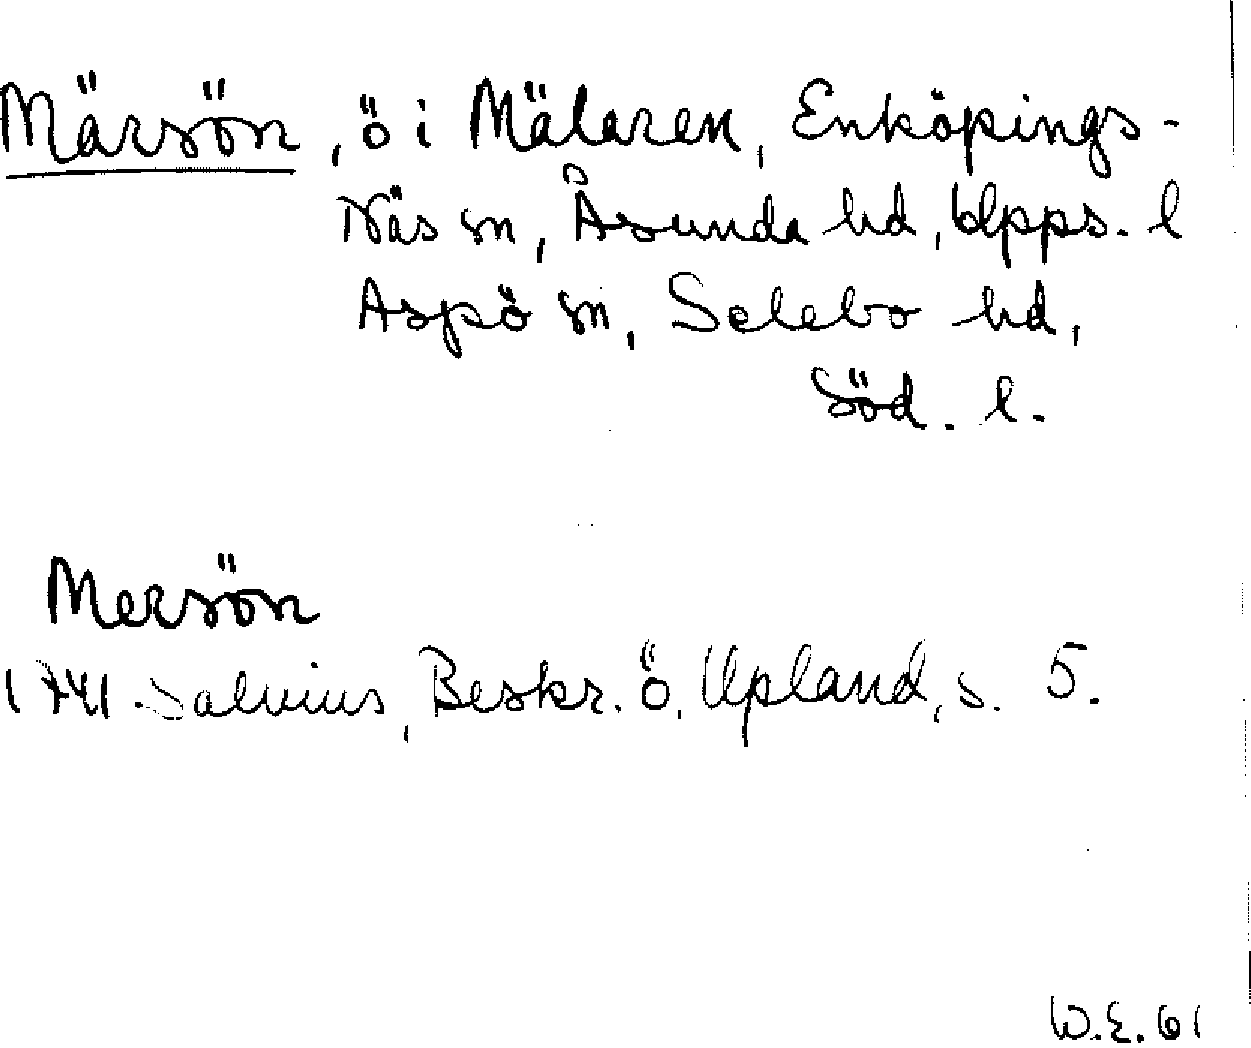 Märsön, ö i Mälaren, Enköpings-
Näs sn, Åsunda hd, Upps. l
Aspö sn, Selebo hd,
Söd. l.
Mersön
1741 Salvius, Beskr. ö. Upland, s. 5.
W.E. 61